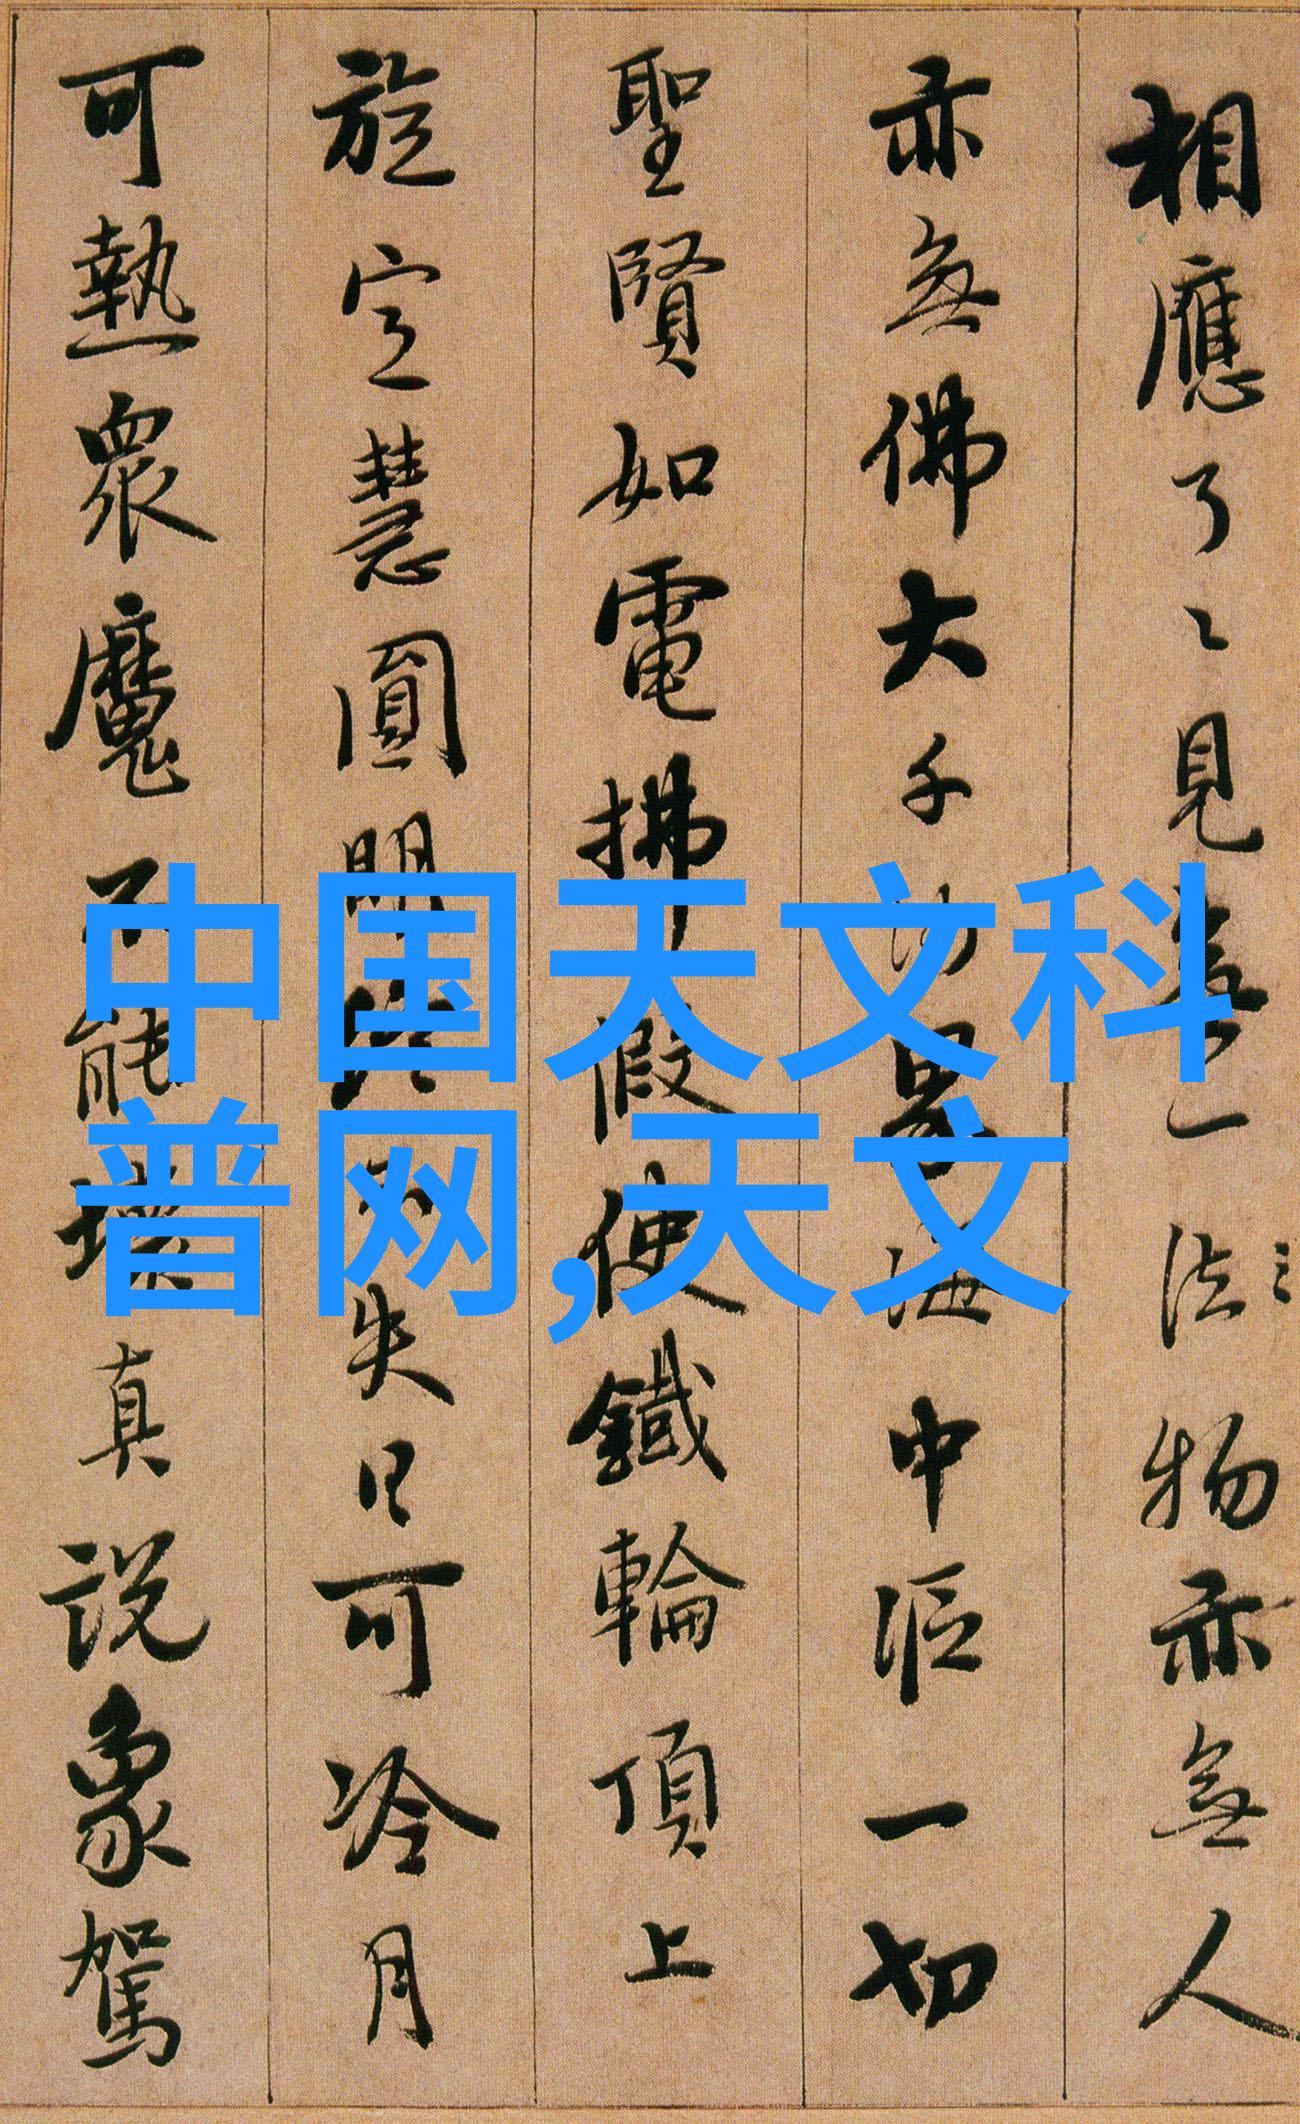 相應了々見無一法之物亦無人
亦無佛大千沙界海中漚一切
聖賢如電拂假使鐵輪頂上
旋定慧圓明終不失日可冷月
可熱眾魔不能壞真說象駕
中国天文科
普网,天文